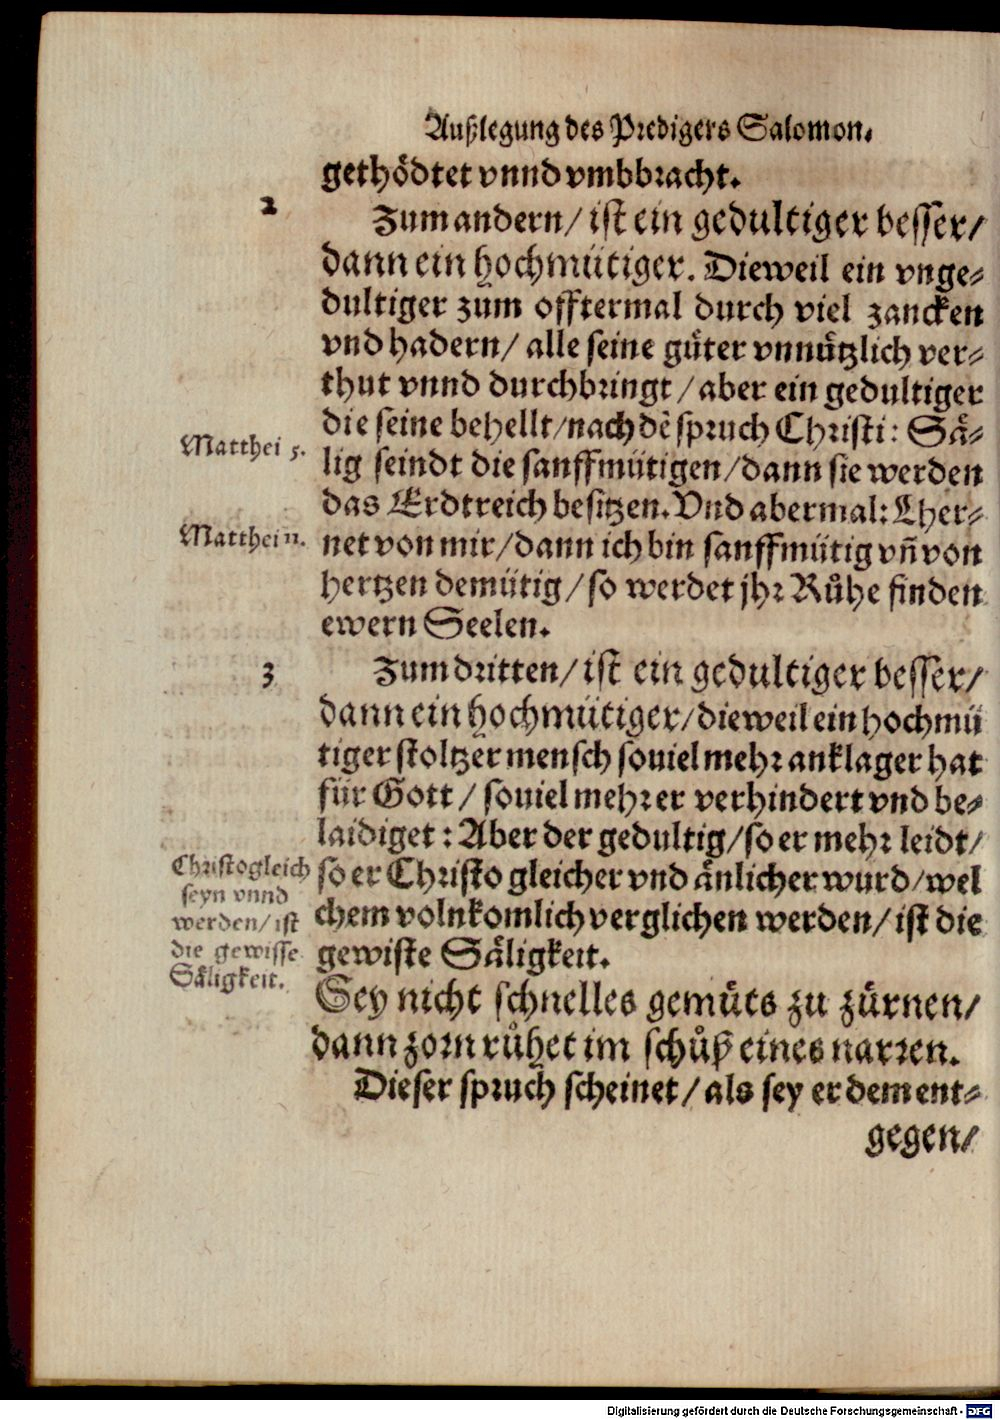 Außlegung des Predigers Salomon.
gethödtet vnnd vmbbracht.
2
Zum andern/ ist ein gedultiger besser/
dann ein hochmütiger. Dieweil ein vnge⸗
dultiger zum offtermal durch viel zancken
vnd hadern/ alle seine güter vnnützlich ver⸗
thut vnnd durchbringt/ aber ein gedultiger
die seine behellt/ nach dẽ spruch Christi: Sä⸗
Matthei 5.
lig seindt die sanffmütigen/ dann sie werden
das Erdtreich besitzen. Vnd abermal: Lher⸗
Matthei 11.
net von mir/ dann ich bin sanffmütig vñ von
hertzen demütig/ so werdet jhr Růhe finden
ewern Seelen.
3
Zum dritten/ ist ein gedultiger besser/
dann ein hochmütiger/ dieweil ein hochmü
tiger stoltzer mensch souiel mehr anklager hat
für Gott/ souiel mehr er verhindert vnd be⸗
laidiget: Aber der gedultig/ so er mehr leidt/
so er Christo gleicher vnd änlicher wurd/ wel
chem volnkomlich verglichen werden/ ist die
gewiste Säligkeit.
Christo gleich
seyn vnnd
werden/ ist
die gewisse
Säligkeit.
Sey nicht schnelles gemüts zu zürnen/
dann zorn růhet im schůß eines narren.
Dieser spruch scheinet/ als sey er dem ent⸗
gegen/
Digitalisierung gefördert durch die Deutsche Forschungsgemeinschaft - DFG